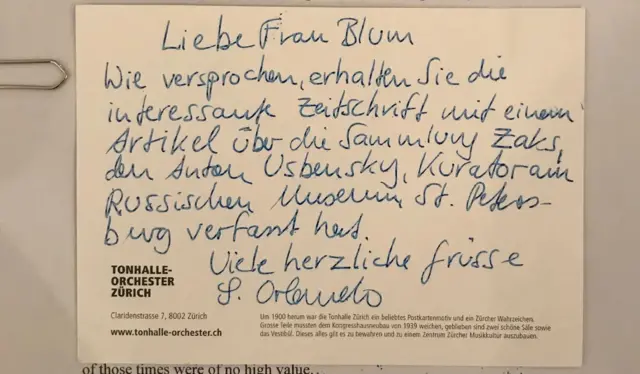 Liebe Frau Blum
Wie versprochen, erhalten Sie die
interessante Zeitschrift mit einem
Artikel über die Sammlung Zaks,
den Anton Usbensky, Kurator am
Russischen Museum St. Peters-
burg verfasst hat.
Viele herzliche Grüsse
S. Orlando
TONHALLE-
ORCHESTER
ZÜRICH
Claridenstrasse 7, 8002 Zürich
www.tonhalle-orchester.ch
Um 1900 herum war die Tonhalle Zürich ein beliebtes Postkartenmotiv und ein Zürcher Wahrzeichen.
Grosse Teile mussten dem Kongresshausneubau von 1939 weichen, geblieben sind zwei schöne Säle sowie
das Vestibül. Dieses alles gilt es zu bewahren und zu einem Zentrum Zürcher Musikkultur auszubauen.
of those times were of no high value.